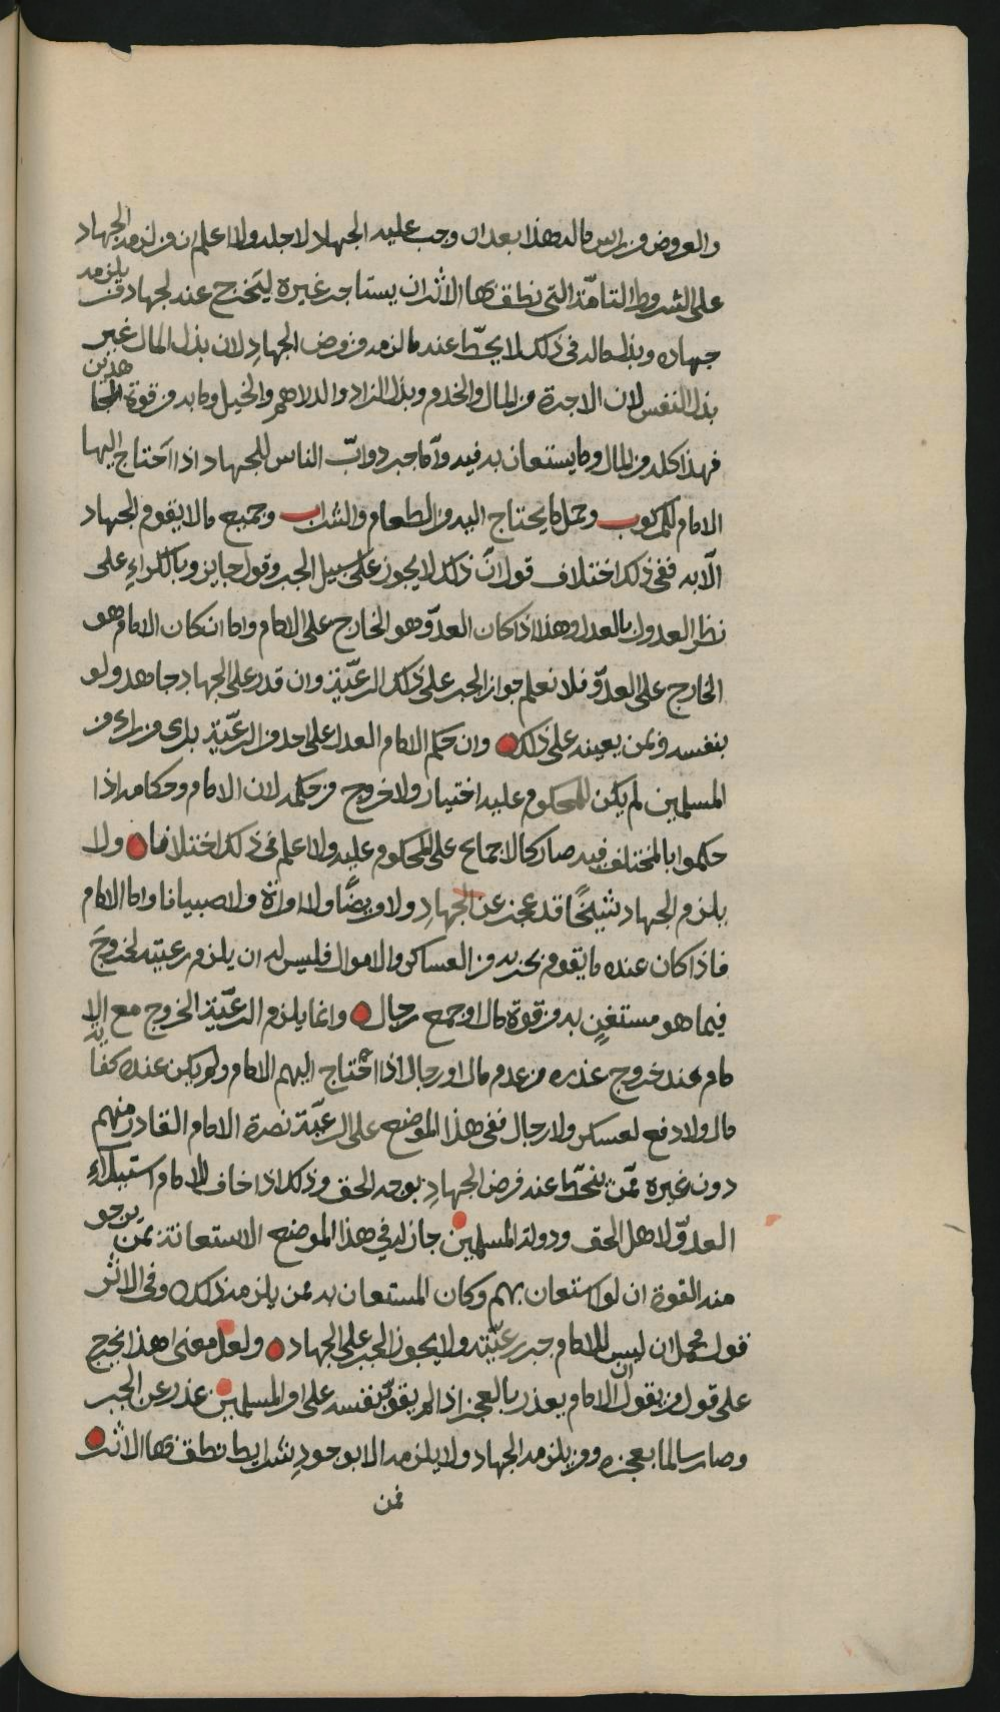 والعروض من راس ماله وهذا بعد ان وجب عليه الجهاد لاجله ولا اعلم ان من لزمه الجهاد
على الشروط التامّة التي نطق بها الاثر ان يستاجر غيره ليخرج عنه لجهاد من يلزمه
جهاده وبذل ماله في ذلك لا يحطّ عنه ما لزمه من فرض الجهادِ لان بذل المال غير
بذل النفس لان الاجرة من المال والخدم وبذل الزاد والدراهم والخيل وما به من قوة المجاهدين
فهذا كله من المال وما يستعان به فيه وأما جبر دوابّ الناس للجهاد اذا احتاج اليها
الامام للركوب وحمل ما يحتاج اليه من الطعام والشراب وجميع ما لا يقوم الجهاد
الّا به ففي ذلك اختلاف قول انّ ذلك لا يجوز على سبيل الجبر وقول جايز وبالكراءِ على
نظر العدول بالعدل وهذا اذا كان العدوّ هو الخارج على الامام واما ان كان الامام هو
الخارج على العدوّ فلا نعلم جواز الجبر على ذلك الرعيّة وان قدر على الجهاد جاهد ولو
بنفسه ومن يعينه على ذلك وان حكم الامام العدل على احد من الرعيّة براى من راء من
المسلمين لم يكن للمحكوم عليه اختيار ولا خروج من حكمه لان الامام وحكامه اذا
حكموا بالمختلف فيه صار كالاجماع على المحكوم عليه ولا اعلم في ذلك اختلافا ولا
يلزم الجهاد شيخًا قد عجز عن الجهادِ ولا مريضًا ولا امراة ولا صبيانا واما الامام
فاذا كان عنده ما يقوم بحربه من العساكر والاموال فليس له ان يلزم رعيته لخروجَ
فيما هو مستغنٍ به من قوة مال او جمع رجال وانما يلزم الرعيّة الخروج مع الا
مام عند خروج عذره من عدم مال او رجال اذا احْتاج اليهم الامام ولم يكن عنده كفاية
مال ولا دفع لعسكر ولا رجال ففي هذا الموضع على الرعيّة نصرة الامام القادر منهم
دون غيره ممّن ينحطّ عنه فرض الجهادِ بوجه الحق وذلك اذا خاف الامام استيلاءِ
العدوّ لاهل الحق ودولة المسلمين جاز له في هذا الموضع الاستعانة بمن يرجو
منه القوة ان لو استعان بهم وكان المستعان به ممن يلزمه ذلك وفي الاثر
قول مجمل ان ليس للامام جبر رعيّته ولا يجوز الجبر على الجهاد ولعل معنى هذا يخرج
على قول من يقول ان الامام يعذر بالعجز اذا لم يقوّ نفسه على امر المسلمين عذر عن الجبر
وصار سالما بعجزه ومن يلزمه الجهاد ولا يلزمه الا بوجودِ شرايط نطق بها الاثر
فمن